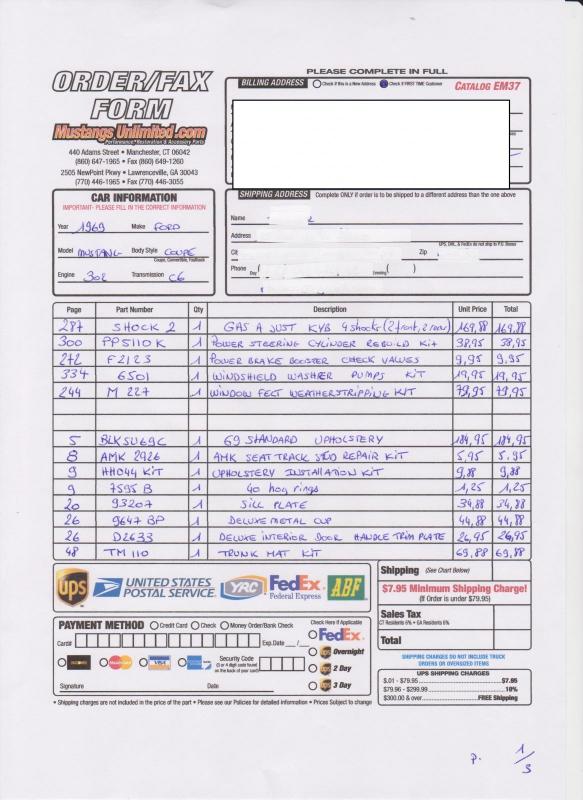 PLEASE COMPLETE IN FULL
ORDER/FAX
FORM
Mustangs Unlimited.com
Performance, Restoration & Accessory Parts
440 Adams Street • Manchester, CT 06042
(860) 647-1965 • Fax (860) 649-1260
2505 NewPoint Pkwy • Lawrenceville, GA 30043
(770) 446-1965 • Fax (770) 446-3055
BILLING ADDRESS Check if this is a New Address Check if FIRST TIME Customer CATALOG EM37
CAR INFORMATION
IMPORTANT- PLEASE FILL IN THE CORRECT INFORMATION
Year 1969 Make FORD
Model MUSTANG Body Style COUPE
Coupe, Convertible, Fastback
Engine 302 Transmission C6
SHIPPING ADDRESS Complete ONLY if order is to be shipped to a different address than the one above
Name
Address
UPS, DHL, & FedEx do not ship to P.O. Boxes
Cit Zip
Phone Day Evening ( )
Page Part Number Qty Description Unit Price Total
287 SHOCK 2 1 GAS A JUST KYB 4 shocks (2 front, 2 rear) 169,88 169,88
300 PP5110K 1 POWER STEERING CYLINDER REBUILD Kit 38,95 38,95
272 F2123 1 POWER BRAKE BOOSTER CHECK VALVES 9,95 9,95
334 6501 1 WINDSHIELD WASHER PUMPS KIT 19,95 19,95
244 M 227 1 WINDOW FELT WEATHERSTRIPPING KIT 79,95 79,95
5 BLKSU69C 1 69 STANDARD UPHOLSTERY 184,95 184,95
8 AMK 2926 1 AMK SEAT TRACK STUD REPAIR KIT 5,95 5,95
9 HH044 KIT 1 UPHOLSTERY INSTALLATION KIT 9,88 9,88
9 7595 B 1 40 hog rings 1,25 1,25
20 93207 1 SILL PLATE 34,88 34,88
26 9647 BP 1 DELUXE METAL CUP 44,88 44,88
26 D2633 1 DELUXE INTERIOR DOOR HANDLE TRIM PLATE 26,95 26,95
48 TM 110 1 TRUNK MAT KIT 69,88 69,88
ups UNITED STATES POSTAL SERVICE YRC FedEx Federal Express ABF
Shipping (See Chart Below)
$7.95 Minimum Shipping Charge!
(If Order is under $79.95)
Sales Tax
CT Residents 6% • GA Residents 6%
Total
PAYMENT METHOD Credit Card Check Money Order/Bank Check
Card# Exp.Date __/__
DISCOVER MasterCard VISA Security Code
(3 or 4 digit code found
on the back of your card)
Signature Date
Check Here If Applicable
FedEx
ups Overnight
ups 2 Day
ups 3 Day
SHIPPING CHARGES DO NOT INCLUDE TRUCK
ORDERS OR OVERSIZED ITEMS
UPS SHIPPING CHARGES
$.01 - $79.95 $7.95
$79.96 - $299.99 10%
$300.00 & over FREE Shipping
* Shipping charges are not included in the price of the part • Please see our Policies for detailed information • Prices Subject to change
p. 1/3